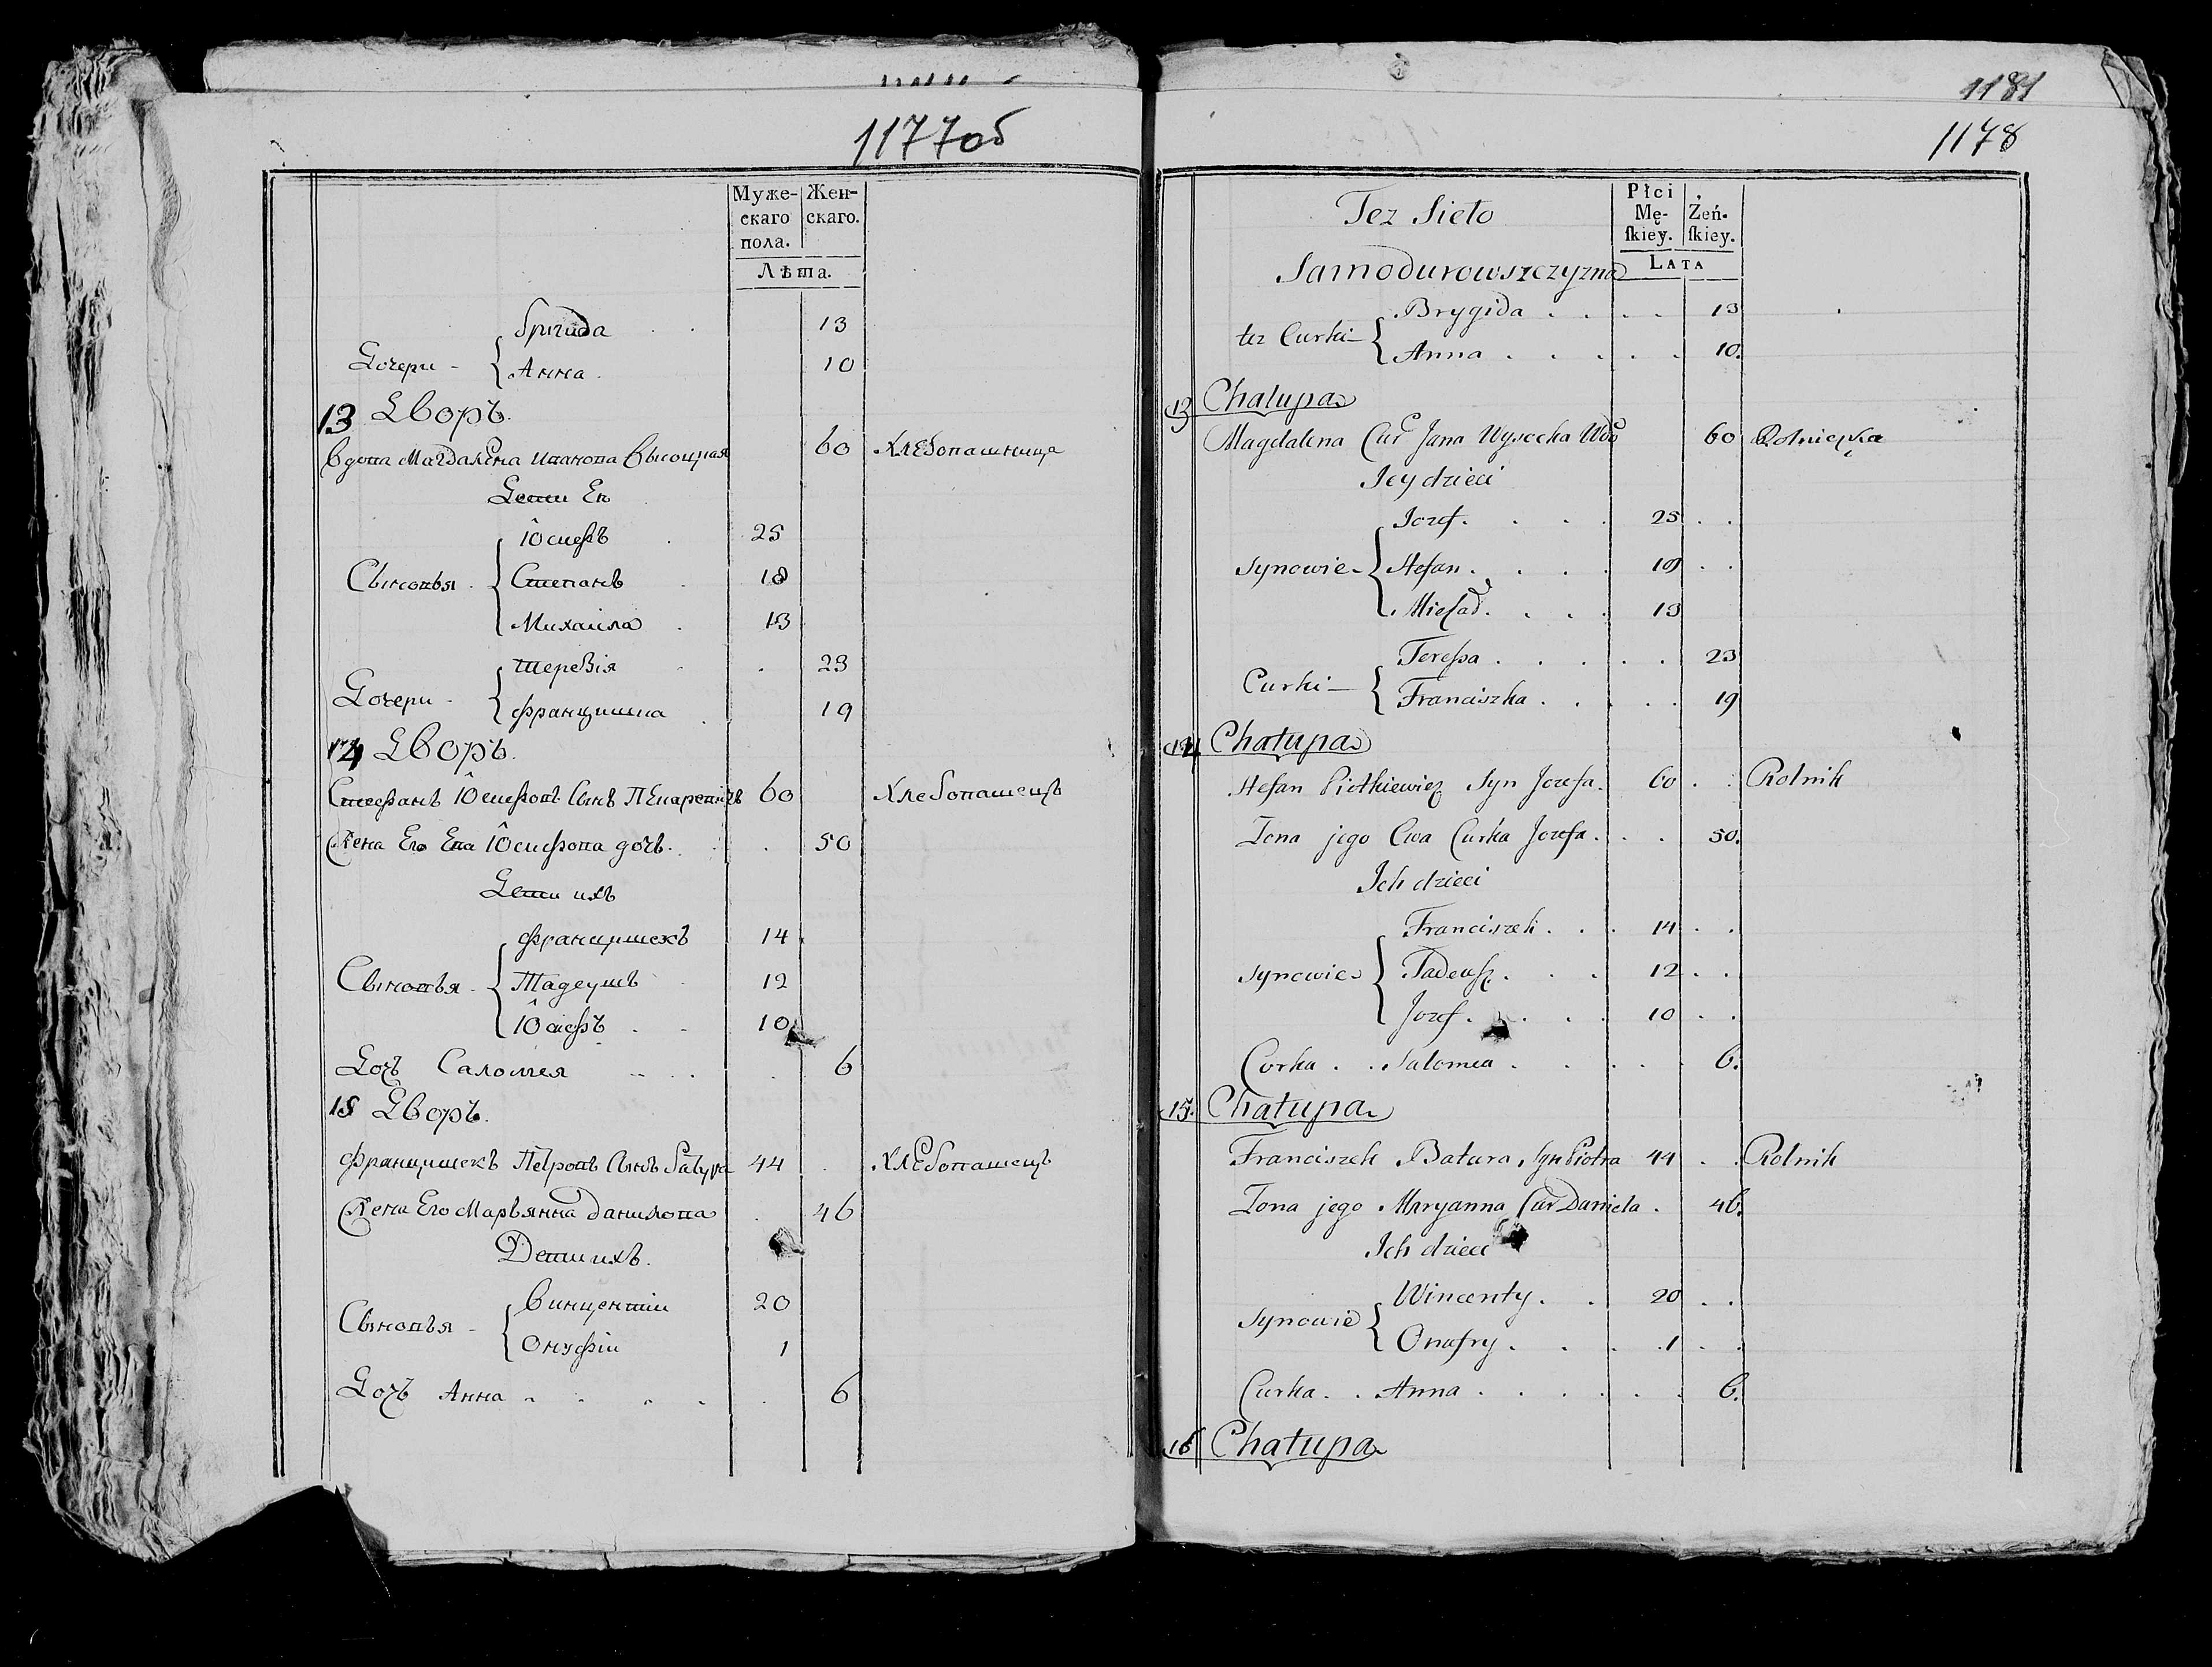 1177об
Муже- Жен-
скаго скаго.
пола.
Лѣта.
Бригида 13
Дочери - Анна 10
13 Дворъ.
Вдова Магдалена Иванова Высоцкая 60 Хлебопашница
Дети Ея
Юсифъ 25
Сыновья Степанъ 18
Михаила 13
Терезія 23
Дочери - Францишка 19
14 Дворъ.
Стефанъ Юсифовъ Сынъ 60 Хлебопашецъ
Жена Его Ева Юсифова дочь 50
Дети ихъ
Францишекъ 14
Сыновья Тадеушъ 12
Юсифъ 10
Дочь Саломея 6
15 Дворъ.
Францишекъ Петровъ Сынъ Батура 44 Хлебопашецъ
Жена Его Марьянна Данилова 46
Дети ихъ.
Винцентіи 20
Сыновья - Онуфріи 1
Дочь Анна 6
1181
1178
Tez Sieło
Płci
Mę- Żeń-
ſkiey. ſkiey.
LATA
Samodurowszczyzna
Brygida 13
tez Curki Anna 10.
13 Chałupa
Magdalena Cur Jana Wysocka Wdo 60 Rolniczka
Jey dzieci
Jozef. 25
Synowie Stefan. 18
Michał. 13
Tereſsa 23
Curki Franciszka 19
14 Chałupa
Stefan Piotkiewicz Syn Jozefa. 60 Rolnik
Zona jego Ewa Curka Jozefa. 50.
Ich dzieci
Franciszek 14
Synowie Tadeuſz. 12
Jozef. 10
Corka Salomea 6.
15. Chałupa
Franciszek Batura Syn Piotra 44 Rolnik
Zona jego Maryanna Cur Daniela 46.
Ich dzieci
Wincenty. 20
Synowie Onofry 1
Curka Anna 6.
16 Chałupa